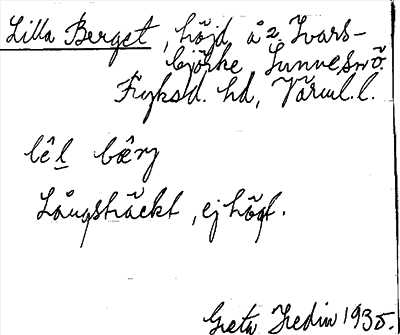 Lilla Berget, höjd å 2 Ivars-
björke Sunne sn ö.
Fryksd. hd, Värml. l.
lêl bærj
Långsträckt, ej högt.
Greta Hedin 1935.